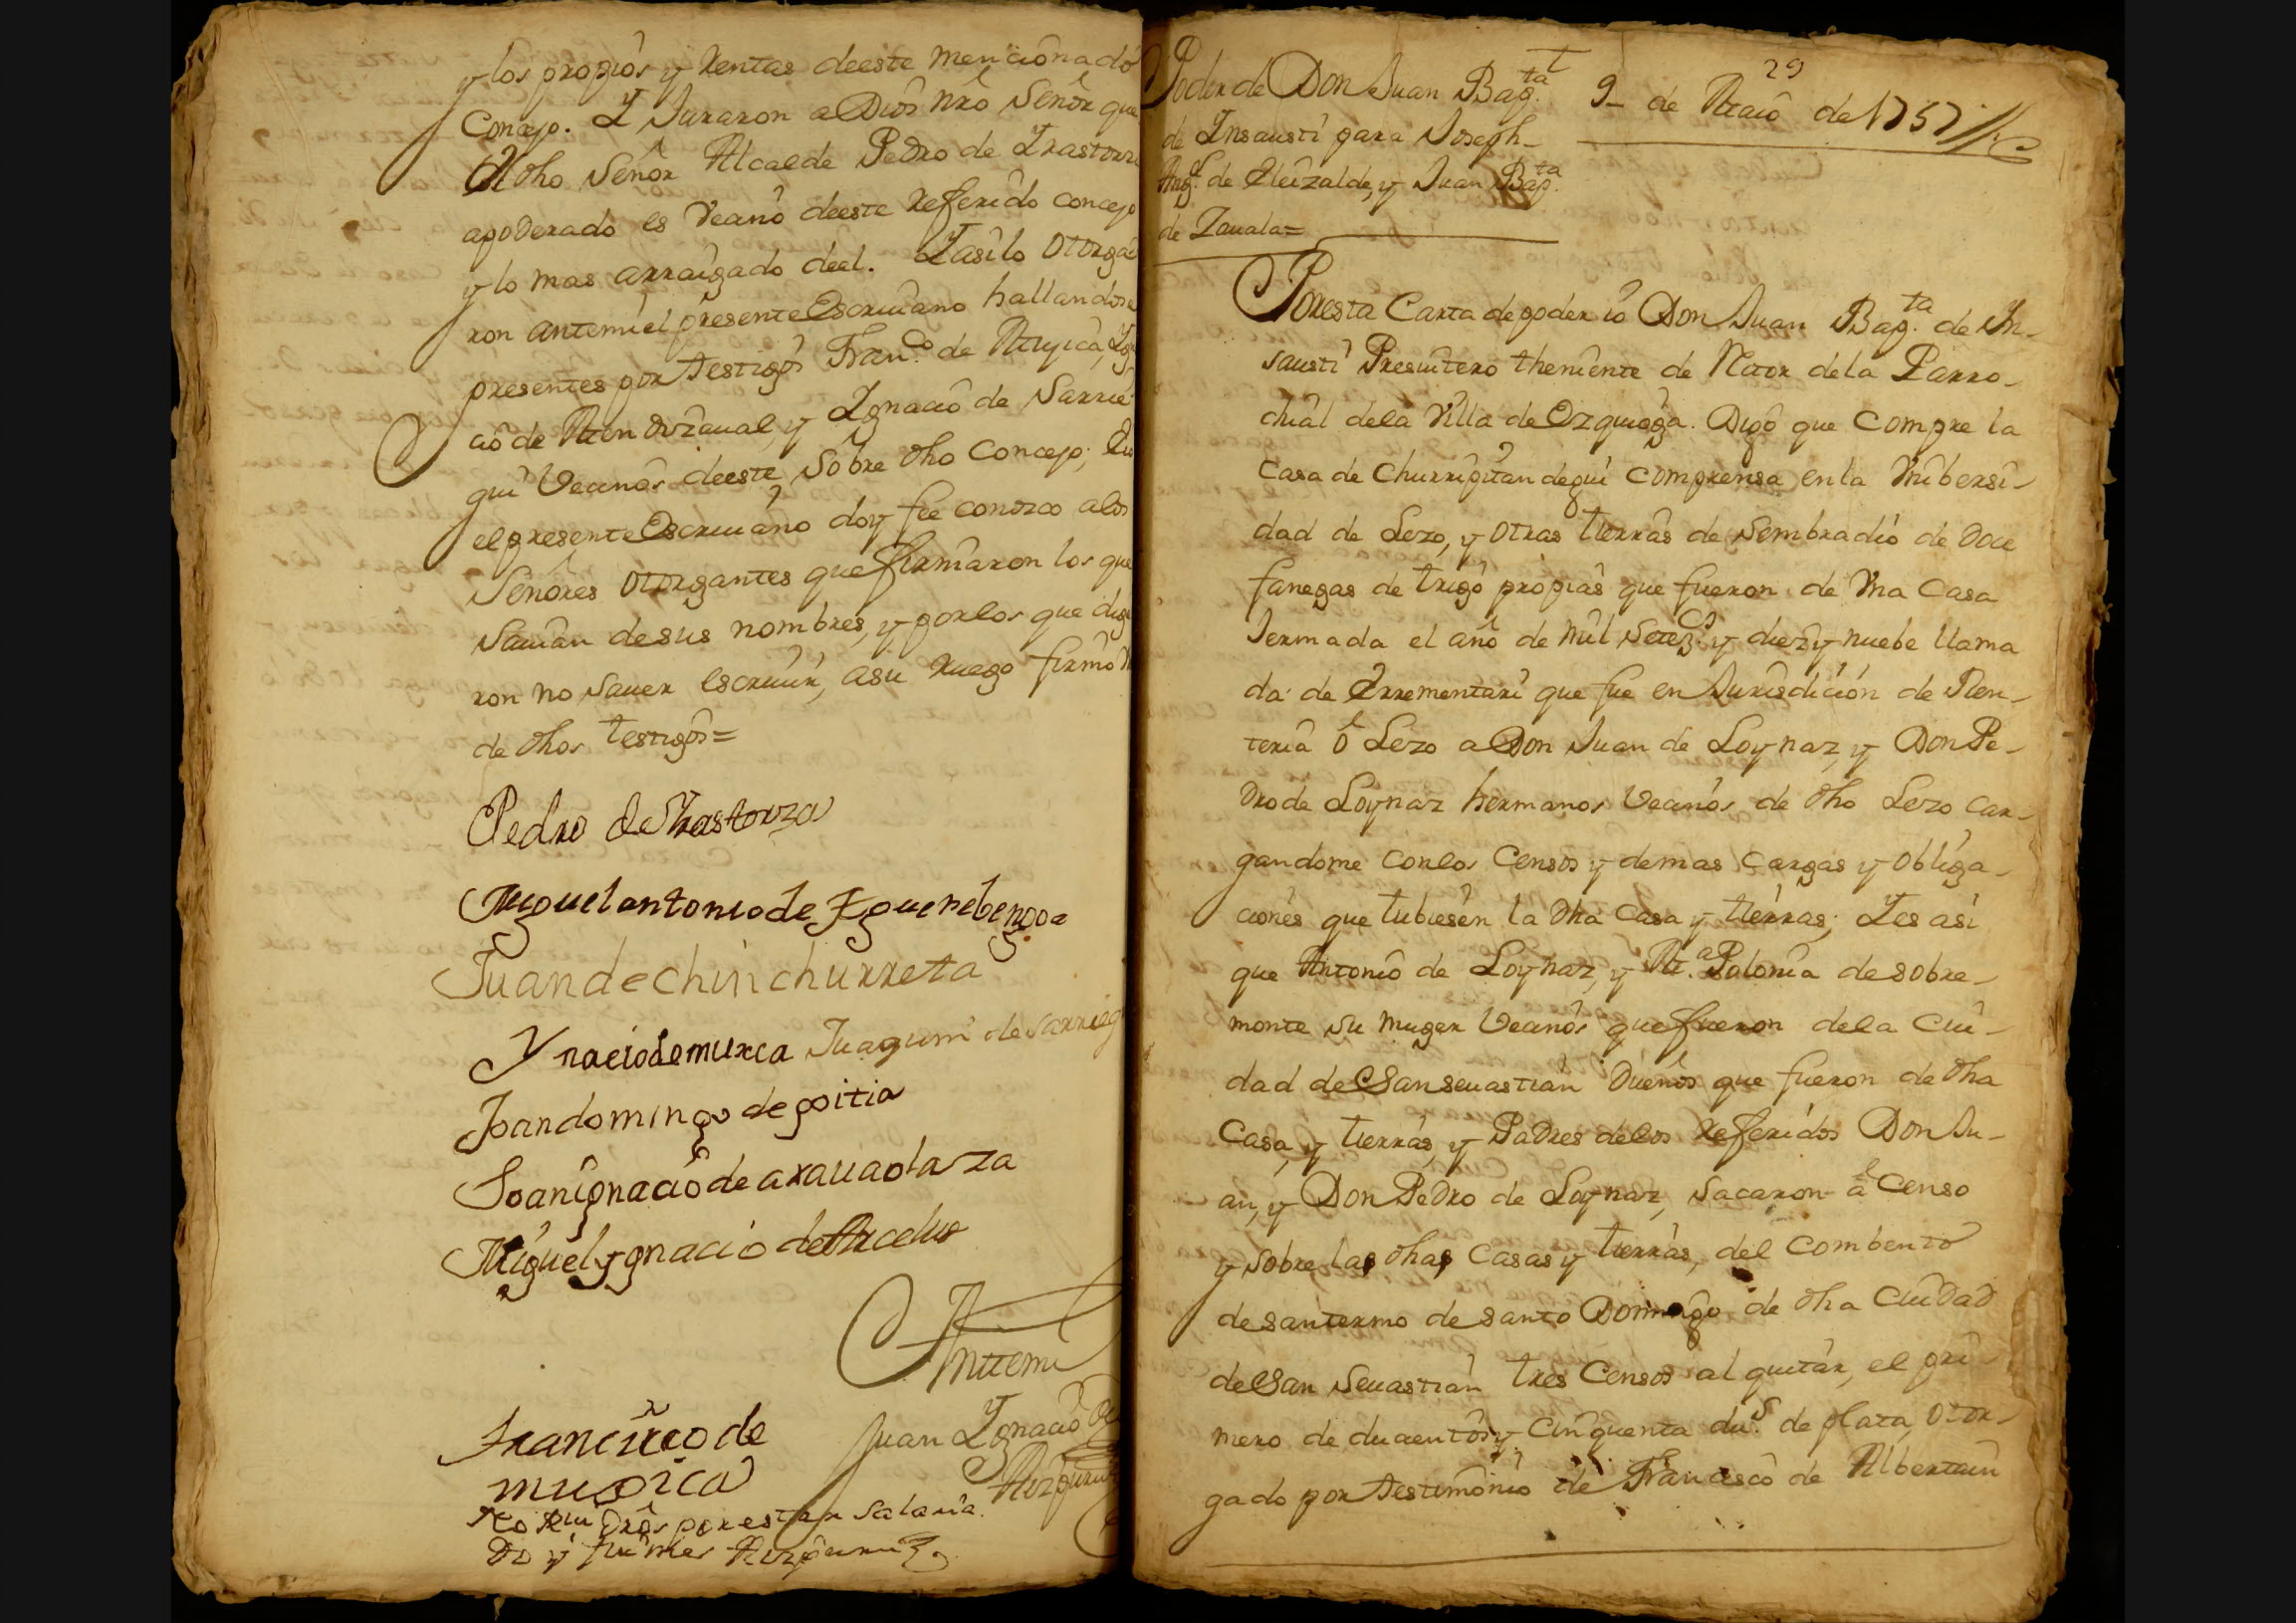 y los propios y Rentas deeste mencionado
Concejo. Y Juraron a Dios nrô Señor que
el dho Señor Alcalde Pedro de Yrastorza
apoderado es Vecino deeste Referido concejo
y lo mas arraigado deel. Yasilo otorga
ron antemi el presente Escriuano hallandose
presentes por testigos Fran.co de Muxica, Ygna
cio de Mendizaual, y Ygnacio de Sarrie
gui Vecinos deeste sobre dho Concejo; Eio
el presente Escriuano doy fee conozco a los
Señores otorgantes que firmaron los que
Sauian de sus nombres, y por los que dige
ron no Sauer escriuir, asu Ruego firmo
de dhos testigos=
Pedro de Yrastorza
Miguel antonio de Eguerebengoa
Juan de chinchurreta
Ynacio de muxca Juaquin de Sarrieg
Joan domingo de goitia
Joan ignacio de arauaolaza
Miguel ygnacio de Arcelus
Anttemi
Juan Ygnacio de
Francisco de
muxica
por estar Salaria
do y
Poder de Don Juan Bap.ta
de Insausti para Joseph
Ang.l de Eleizalde, y Juan Bap.ta
de Zauala=
9 de Maio de 1757
29
Por esta Carta de poder io Don Juan Bap.ta de In-
sausti Presuitero theniente de Retor dela Parro-
chial dela Villa de Ezquioga. Digo que Compre la
Casa de Churripitandegui comprensa en la Vnibersi-
dad de Lezo, y otras tierras de Sembradio de doce
fanegas de trigo propias que fueron de Vna Casa
Iermada el año de mil Setez.s y diez y nuebe llama
da de Errementari que fue en Jurisdicion de Ren-
teria ó Lezo a Don Juan de Loynaz, y Don Pe-
dro de Loynaz hermanos Vecinos de dho Lezo car-
gandome con los Censos y demas Cargas y obliga-
ciones que tubiesen la dha Casa y tierras; Y es asi
que Antonio de Loynaz, y M.a Polonia de sobre-
monte su muger Vecinos que fueron dela Ciu-
dad de San Seuastian Dueños que fueron de dha
Casa, y tierras, y Padres de los Referidos Don Ju-
an, y Don Pedro de Loynaz, sacaron á Censo
y sobre las dhas Casas y tierras, del Combento
de santermo de santo Domingo de dha Ciudad
de San Seuastian tres Censos al quitar, el pri-
mero de ducientos y cinquenta du.s de plata, otor-
gado por testimonio de Francisco de Albertain